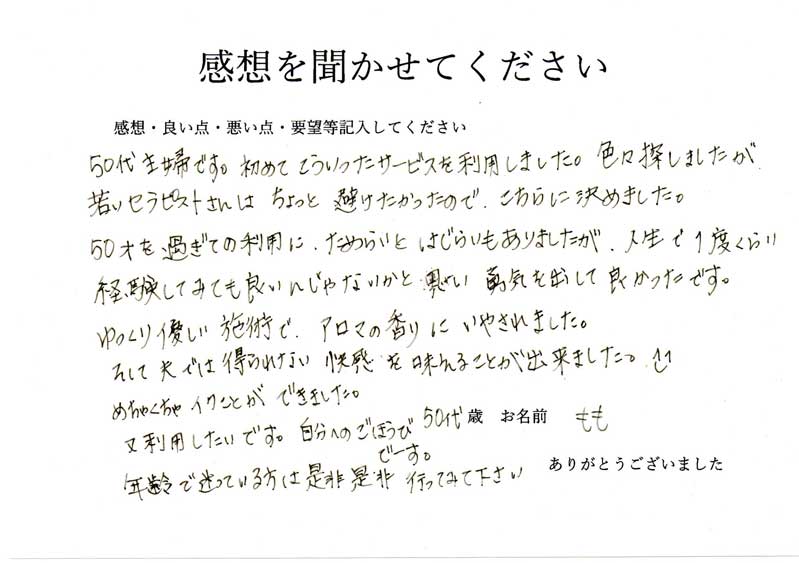 感想を聞かせてください
感想・良い点・悪い点・要望等記入してください
50代主婦です。初めてこういったサービスを利用しました。色々探しましたが
若いセラピストさんは ちょっと 避けたかったので、こちらに決めました。
50才を過ぎての利用に、ためらいと はじらいもありましたが、人生で1度くらい
経験してみても良いんじゃないかと 思い 勇気を出して 良かったです。
ゆっくり優しい 施術で、アロマの香りに いやされました。
そして夫では得られない 快感 を 味わえることが出来ました。
めちゃくちゃ イクことが できました。
又利用したいです。自分へのごほうび
でーす。
50代 歳 お名前 もも
年齢で迷っている方は是非是非 行ってみて下さい
ありがとうございました